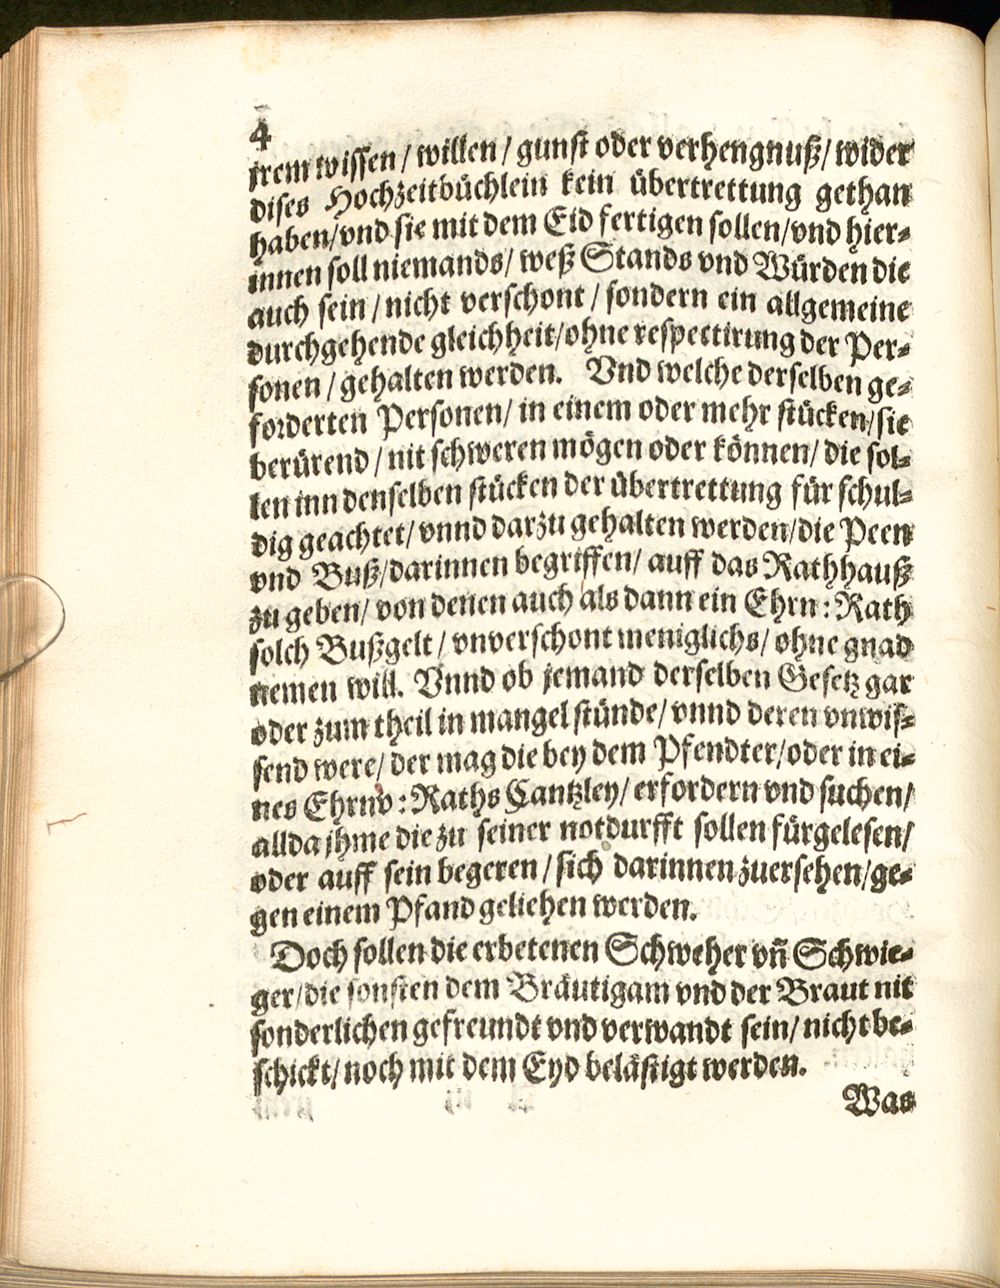 4
jrem wissen / willen / gunst oder verhengnuß / wider
dises Hochzeitbüchlein kein übertrettung gethan
haben / vnd sie mit dem Eid fertigen sollen / vnd hier⸗
innen soll niemands / weß Stands vnd Würden die
auch sein / nicht verschont / sondern ein allgemeine
durchgehende gleichheit / ohne respectirung der Per⸗
sonen / gehalten werden. Vnd welche derselben ge⸗
forderten Personen / in einem oder mehr stücken / sie
berürend / nit schweren mögen oder können / die sol⸗
len inn denselben stücken der übertrettung für schul⸗
dig geachtet / vnnd darzu gehalten werden / die Peen
vnd Buß / darinnen begriffen / auff das Rathhauß
zu geben / von denen auch als dann ein Ehrn: Rath
solch Bußgelt / vnverschont meniglichs / ohne gnad
nemen will. Vnnd ob jemand derselben Gesetz gar
oder zum theil in mangel stünde / vnnd deren vnwis⸗
send were / der mag die bey dem Pfendter / oder in ei⸗
nes Ehrnv: Raths Cantzley / erfordern vnd suchen /
allda jhme die zu seiner notdurfft sollen fürgelesen /
oder auff sein begeren / sich darinnen zuersehen / ge⸗
gen einem Pfand geliehen werden.
Doch sollen die erbetenen Schweher vñ Schwie⸗
ger / die sonsten dem Bräutigam vnd der Braut nit
sonderlichen gefreundt vnd verwandt sein / nicht be⸗
schickt / noch mit dem Eyd belästigt werden.
Was